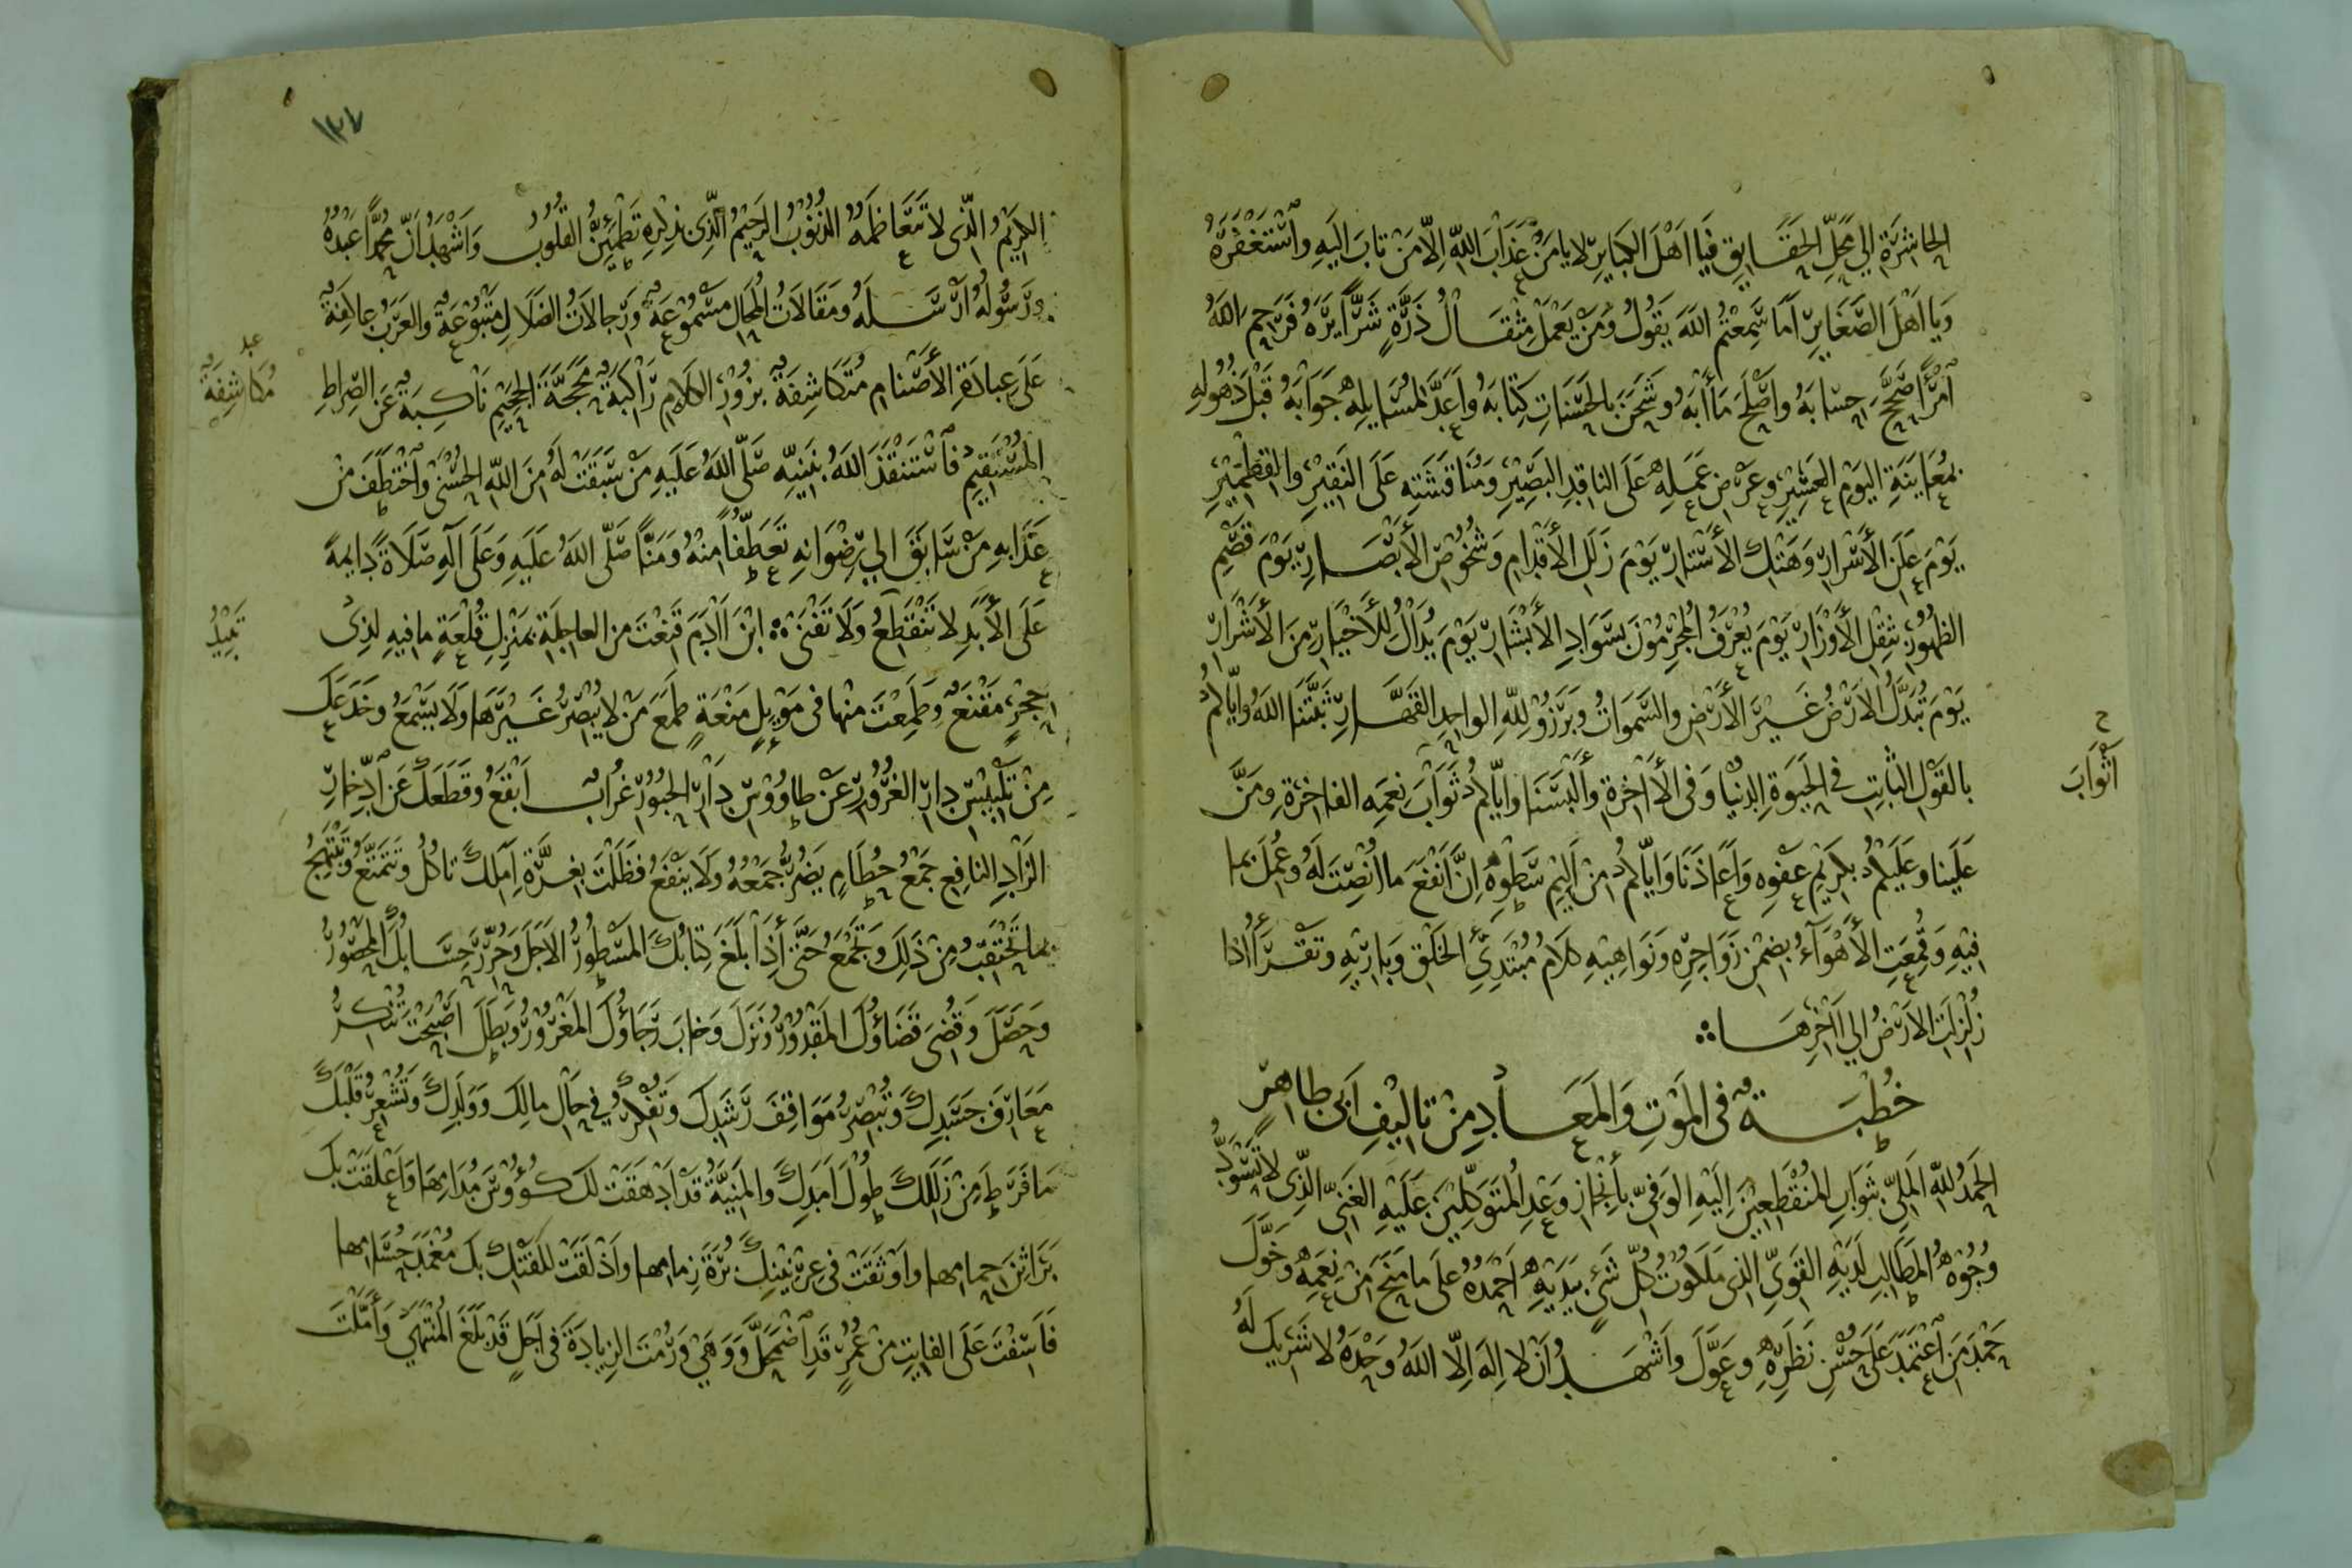 الحاشرة الي محل الحقايق فيا اهل الكبايرلا يامن عذاب الله الا من تاب اليه واستغفره
ويا اهل الصغاير اما سمعتم الله يقول ومن يعمل مثقال ذرة شرا يره فرحم الله
امرأ صحح حسابه واصلح مأابه وشحن بالحسنات كتابه واعد لمسايله جوابه قبل ذهوله
بمعاينة اليوم العسير وعرض عمله على الناقد البصير ومناقشته على النقير والقطمير
يوم علن الأسرار وهتك الأستار يوم زلل الأقدام وشخوص الأبصار يوم قصم
الظهور بثقل الأوزار يوم يعرف المجرمون بسواد الأبشار يوم يدال للأخيار من الأشرار
يوم تبدل الارض غير الأرض والسموات وبرزو لله الواحد القهار ثبتنا الله واياكم
بالقول الثابت في الحيوة الدنيا وفي الأاخرة وألبسنا واياكم ثواب نعمه الفاخرة ومن
اثواب
علينا وعليكم بكريم عفوه واعاذنا واياكم من اليم سطوه ان انفع ما انصت له وعمل بما
فيه وقمعت الأهوآء بضمن زواجره ونواهيه كلام مبتدئ الخلق وباريه وتقرأ اذا
زلزلت الارض الي اخرها
خطبة في الموت والمعاد من تاليف ابي طاهر
الحمد لله الملي بثواب المنقطعين اليه الوفي بأنجاز وعد المتوكلين عليه الغني الذي لا تسود
وجوه المطالب لديه القوي الذي ملكوت كل شئ بيديه احمده على ما منح من نعمه وخول
حمد من اعتمد على حسن نظره وعول واشهد ان لا اله الا الله وحده لا شريك له
١٣٧
الكريم الذي لا تتعاظمه الذنوب الرحيم الذي بذكره تطمئن القلوب واشهد ان محمدا عبده
ورسوله ارسله ومقالات المحال مسموعة ورجالات الضلال متبوعة والعرب عاكفة
على عبادة الأصنام متكاشفة بزور الكلام راكبة محجة الجحيم ناكبة عن الصراط
مكاشفة
المستقيم فاستنقذ الله بنبيه صلى الله عليه من سبقت له من الله الحسنى واختطف من
عذابه من سابق الي رضوانه تعطفا منه ومنا صلى الله عليه وعلى آله صلاة دايمة
على الأبد لا تنقطع ولا تفنى ابن اادم قنعت من العاجلة بمنزل قلعة ما فيه لذي
حجر مقنع وطمعت منها في موئل منعة طمع من لا يبصر غيرها ولا يسمع وخدعك
من تلبيس دار الغرور عن طاووس دار الحبور غراب ابقع وقطعك عن ادخار
الزاد النافع جمع حطام يضر جمعه ولا ينفع فظلت بغرة املك تاكل وتتمتع وتبتهج
بما تحتقب من ذلك وتجمع حتى أذا بلغ كتابك المسطور الاجل وحرر حسابك المحصور
وحصل وقضي قضاؤك المقدور ونزل وخاب رجاؤك المغرور وبطل اصبحت تنكر
معارف جسدك وتبصر مواقف رشدك وتفكر في حال مالك وولدك وتشعر قلبك
ما فرط من زللك طول امدك والمنية قد ادهقت لك كؤوس مدامها واعلقت بك
براثن حمامها واوثقت في عرنينك برة زمامها واذلقت للفتك بك مغمد حسامها
فاسفت على الفايت من عمر قد اضمحل ووهي ورمت الزيادة في اجل قد بلغ المنتهي وأملت